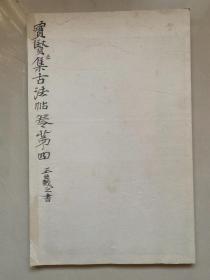 寶賢集古法帖卷第四
王羲之書